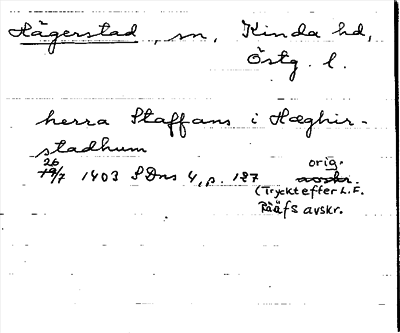 Hägerstad, sn, Kinda hd,
Östg. l.
herra Staffans i Hæghir-
stadhum
26/7 1403 SDns 4, p. 187 orig.
(Tryckt efter L.F.
Rääfs avskr.